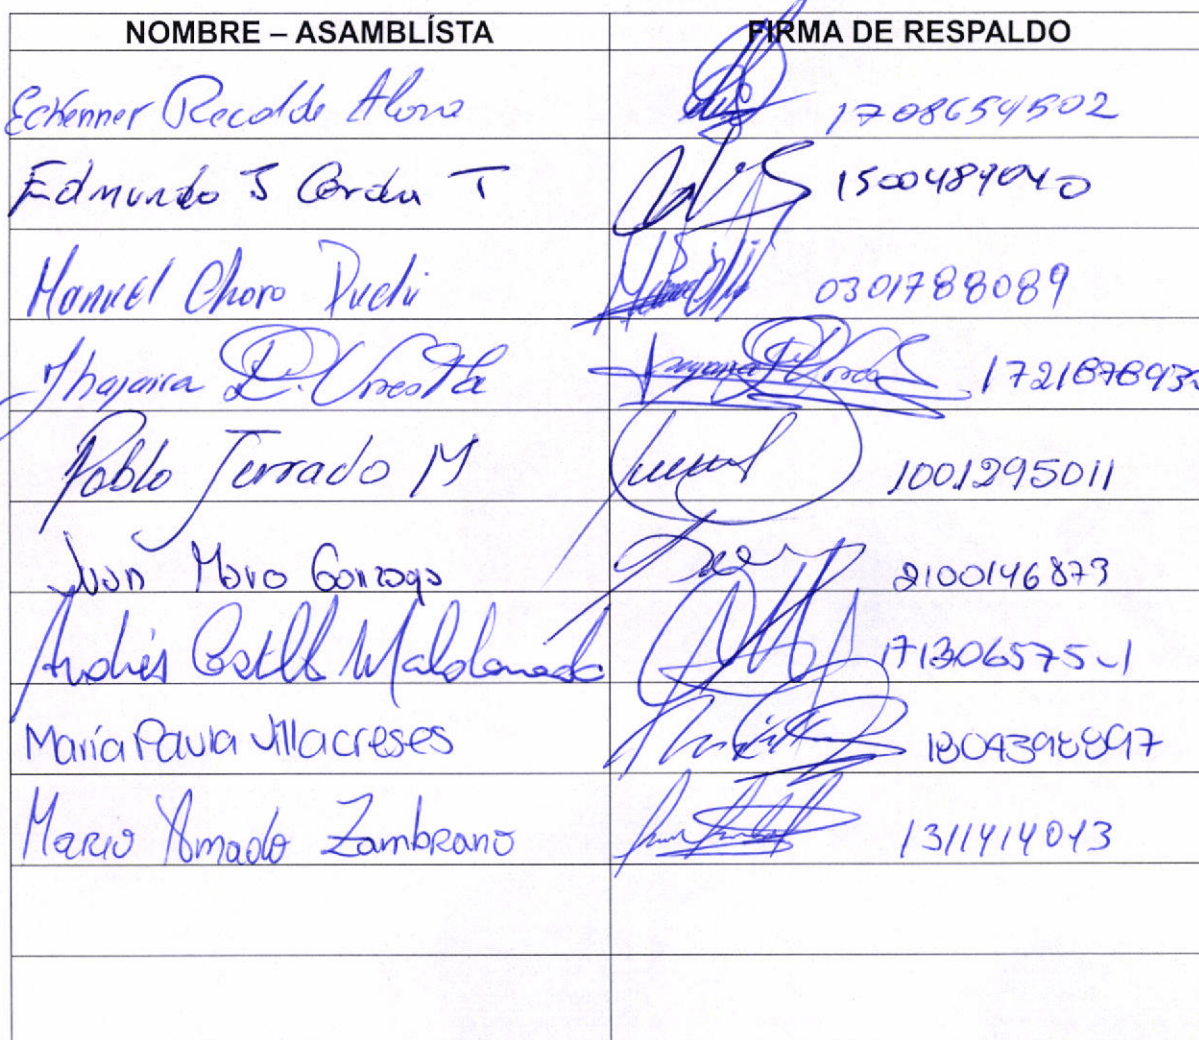 NOMBRE – ASAMBLÍSTA FIRMA DE RESPALDO
Eckenner Recalde Alava 1708654502
Edmundo S Cerda T 1500489040
Manuel Choro Puchi 0301788089
Jhajaira E. Urresta
Pablo Jurrado M 1001295011
Juan Moro Gonzaga 2100146873
Andrés Castillo Maldonado 171306575-1
María Paula Villacreses 1804398897
Mario Amado Zambrano 1311414013